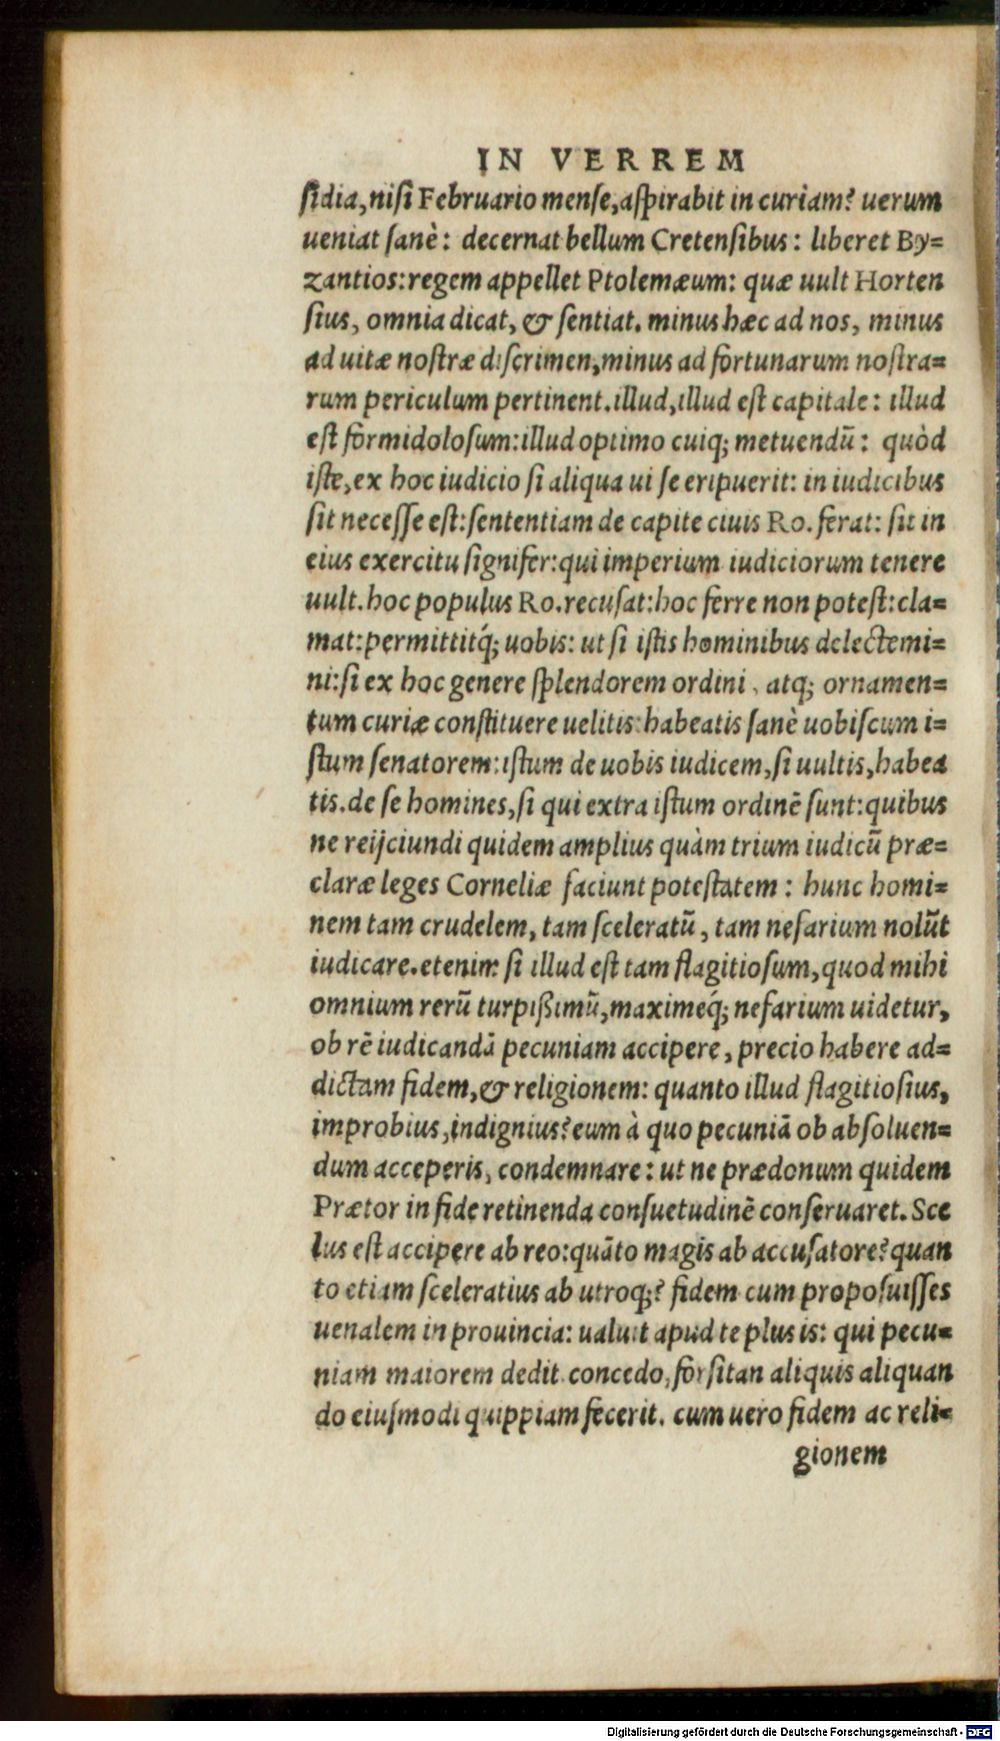 IN VERREM
sidia, nisi Februario mense, aspirabit in curiam? uerum
ueniat sanè: decernat bellum Cretensibus: liberet By=
zantios: regem appellet Ptolemæum: quæ uult Horten
sius, omnia dicat, & sentiat. minus hæc ad nos, minus
ad uitæ nostræ discrimen, minus ad fortunarum nostra=
rum periculum pertinent. illud, illud est capitale: illud
est formidolosum: illud optimo cuiq; metuendū: quòd
iste, ex hoc iudicio si aliqua ui se eripuerit: in iudicibus
sit necesse est: sententiam de capite ciuis Ro. ferat: sit in
eius exercitu signifer: qui imperium iudiciorum tenere
uult. hoc populus Ro. recusat: hoc ferre non potest: cla=
mat: permittitq́; uobis: ut si istis hominibus delectemi=
ni: si ex hoc genere splendorem ordini, atq; ornamen=
tum curiæ constituere uelitis: habeatis sanè uobiscum i=
stum senatorem: istum de uobis iudicem, si uultis, habea
tis. de se homines, si qui extra istum ordinē sunt: quibus
ne reijciundi quidem amplius quàm trium iudicū præ=
claræ leges Corneliæ faciunt potestatem: hunc homi=
nem tam crudelem, tam sceleratū, tam nefarium nolūt
iudicare. etenim si illud est tam flagitiosum, quod mihi
omnium rerū turpißimū, maximeq́; nefarium uidetur,
ob rē iudicandā pecuniam accipere, precio habere ad=
dictam fidem, & religionem: quanto illud flagitiosius,
improbius, indignius? eum à quo pecuniā ob absoluen=
dum acceperis, condemnare: ut ne prædonum quidem
Prætor in fide retinenda consuetudinē conseruaret. Sce
lus est accipere ab reo: quāto magis ab accusatore? quan
to etiam sceleratius ab utroq;? fidem cum proposuisses
uenalem in prouincia: ualuit apud te plus is: qui pecu=
niam maiorem dedit. concedo, forsitan aliquis aliquan
do eiusmodi quippiam fecerit. cum uero fidem ac reli=
gionem
Digitalisierung gefördert durch die Deutsche Forschungsgemeinschaft - DFG